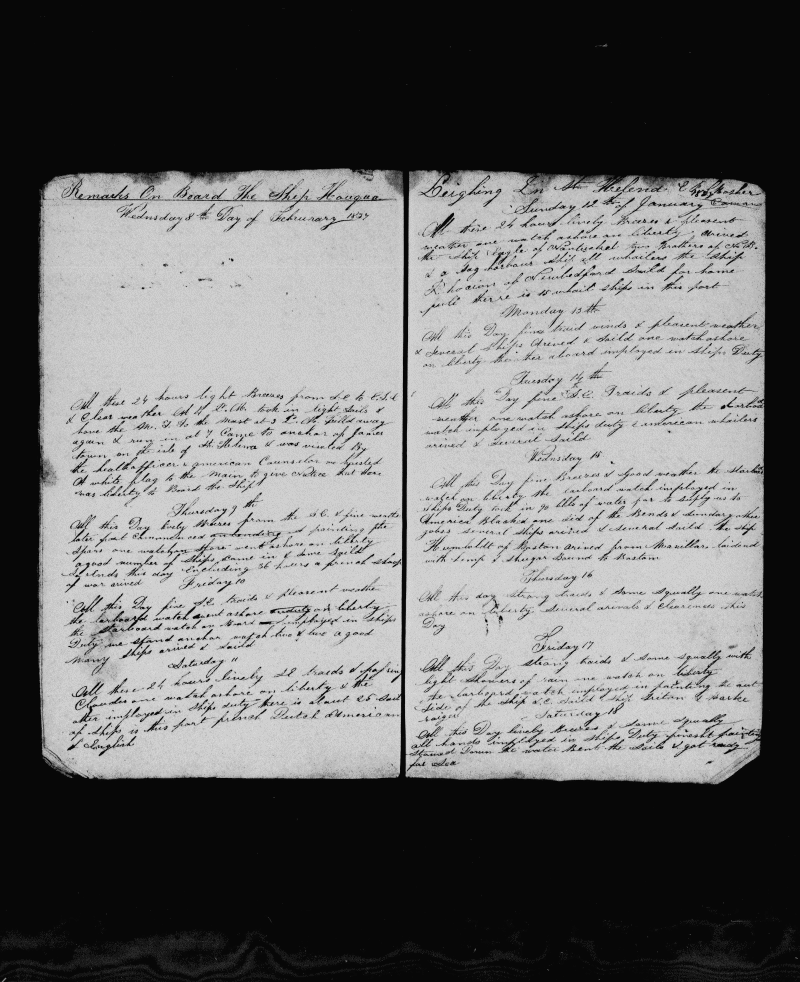 Remarks On Board The Ship Houqua
Wednsday 8th Day of Februrary 1837
All these 24 hours light Breezes from S.E to E.S.E
& Clear weather At 11 P. M. took in light Sails &
have the M. T. to the Mast at 3 A. M. filld away
again & run in at 7 Came to anchor of James
town on the isle of St. Helena & was visited By
the healthofficer & american Counselor
A white flag to the Main to give notice that
was liberty to Board the Ship
Thursday 9 th
All this Day lively Breezes from the S.E. &
later part Commenced painting the
Spars one watch went ashore on liberty
a good number of Ships came in & some Saild
this day Excluding 36 hours a french Sloop
of war arived Friday 10
All this Day fine S.E. traids & pleasent weather
the larboard watch went ashore on liberty
the Starboard watch on Board imployed in Ships
Duty we stand anchor watch two & two a good
many Ships arived & Saild
Saturday 11
All these 24 hours lively S E traids & passing
Cloudes one watch ashore on liberty & the
other imployed in Ships duty there is about 25 Sail
of Ships is this port french Dutch & American
& English
Leighing In St Helena
Sunday 12 th of January
All these 24 hours lively Breezes & pleasent
weather one watch ashore on liberty arived
the Ship Eagle of Nantucket two Brothers of N. B.
& a Sag harbour Ship all whailers the Ship
Phocion of Newbedford Saild for home
there is 15 whail ships in this port
Monday 13 th
All this Day fine traid winds & pleasent weather
& Several Ships arived & Saild one watch ashore
on liberty the other aboard imployed in Ships Duty
Tuesday 14 th
All this Day fine S.E. Traids & pleasent
weather one watch ashore on liberty the Larboard
watch imployed in Ships duty 2 american whailers
arived & several Saild
Wednsday 15
All this Day fine Breezes & Good weather the Starboard
watch on liberty the larboard watch imployed in
Ships Duty took in 90 bbls of water for to Suply us to
America Blacked one Sid of the Bends & Sundary other
jobes Several Ships arived & Several Saild the Ship
Humboldt of Boston arived from Manillas laided
with hemp & Shugar Bound to Boston
Thursday 16
All this day strong traids & some Squally one watch
ashore on liberty Several arivels & Clearences this
Day
Friday 17
All this Day strong traids & some squally with
light Showers of rain one watch on liberty
the larboard watch imployed in painting the out
Side of the Ship
Saturday 18
All this Day lively Breezes & Some Squally
all hands imployed in Ships Duty finesht painting
Stowed Down the water Bent the Sails & got ready
for Sea